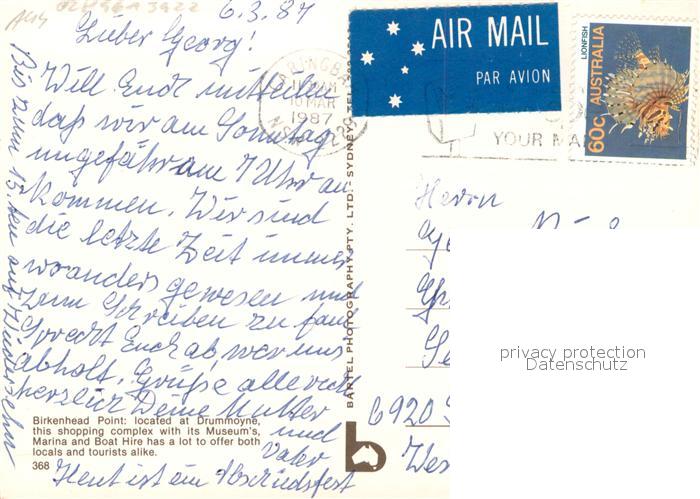 6.3.87
Lieber Georg!
Will Euch mitteilen
daß wir am Sonntag
ungefähr am 7 Uhr an
kommen. Wir sind
die letzte Zeit immer
woanders gewesen und
zum Schreiben zu faul
Sprecht Euch ab, wer uns
abholt. Grüße alle recht
herzlich Deine Mutter
und
Vater
Heut ist ein Abschiedsfest
Bis zum 15.ten auf Wiedersehen
Birkenhead Point: located at Drummoyne,
this shopping complex with its Museum's,
Marina and Boat Hire has a lot to offer both
locals and tourists alike.
368
BARTEL PHOTOGRAPHY PTY. LTD. - SYDNEY
b
AIR MAIL
PAR AVION
10 MAR
1987
YOUR
LIONFISH
AUSTRALIA
60c
Herrn
6920
privacy protection
Datenschutz